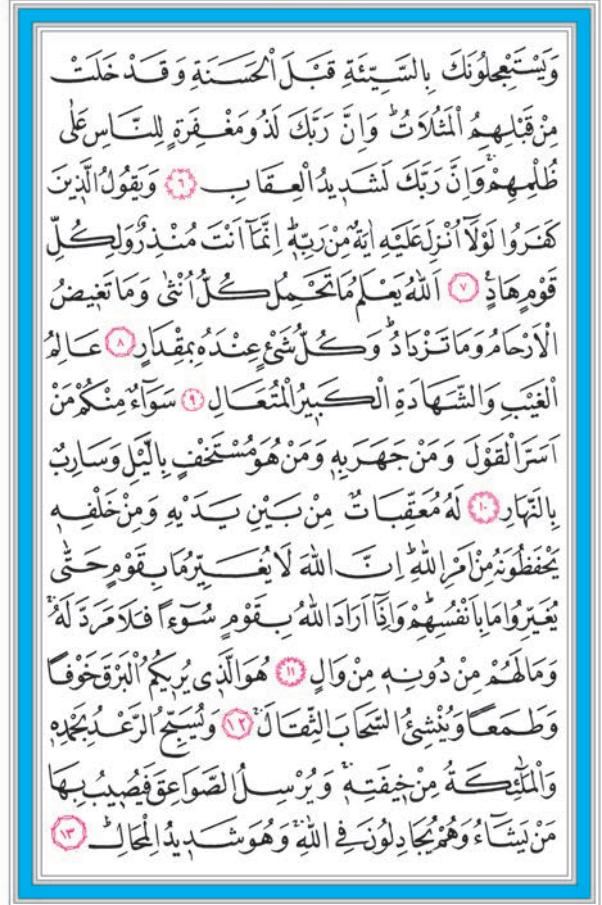 وَيَسْتَعْجِلُونَكَ بِالسَّيِّئَةِ قَبْلَ الْحَسَنَةِ وَقَدْ خَلَتْ
مِنْ قَبْلِهِمُ الْمَثُلَاتُۜ وَاِنَّ رَبَّكَ لَذُو مَغْفِرَةٍ لِلنَّاسِ عَلٰى
ظُلْمِهِمْۚ وَاِنَّ رَبَّكَ لَشَدٖيدُ الْعِقَابِ ﴿٦﴾ وَيَقُولُ الَّذٖينَ
كَفَرُوا لَوْلَٓا اُنْزِلَ عَلَيْهِ اٰيَةٌ مِنْ رَبِّهٖؕ اِنَّمَٓا اَنْتَ مُنْذِرٌ وَلِكُلِّ
قَوْمٍ هَادٍ ﴿٧﴾ اَللّٰهُ يَعْلَمُ مَا تَحْمِلُ كُلُّ اُنْثٰى وَمَا تَغٖيضُ
الْاَرْحَامُ وَمَا تَزْدَادُؕ وَكُلُّ شَيْءٍ عِنْدَهُ بِمِقْدَارٍ ﴿٨﴾ عَالِمُ
الْغَيْبِ وَالشَّهَادَةِ الْكَبٖيرُ الْمُتَعَالِ ﴿٩﴾ سَوَٓاءٌ مِنْكُمْ مَنْ
اَسَرَّ الْقَوْلَ وَمَنْ جَهَرَ بِهٖ وَمَنْ هُوَ مُسْتَخْفٍ بِالَّيْلِ وَسَارِبٌ
بِالنَّهَارِ ﴿١٠﴾ لَهُ مُعَقِّبَاتٌ مِنْ بَيْنِ يَدَيْهِ وَمِنْ خَلْفِهٖ
يَحْفَظُونَهُ مِنْ اَمْرِ اللّٰهِؕ اِنَّ اللّٰهَ لَا يُغَيِّرُ مَا بِقَوْمٍ حَتّٰى
يُغَيِّرُوا مَا بِاَنْفُسِهِمْؕ وَاِذَٓا اَرَادَ اللّٰهُ بِقَوْمٍ سُٓوءًا فَلَا مَرَدَّ لَهُۚ
وَمَا لَهُمْ مِنْ دُونِهٖ مِنْ وَالٍ ﴿١١﴾ هُوَ الَّذٖى يُرٖيكُمُ الْبَرْقَ خَوْفًا
وَطَمَعًا وَيُنْشِئُ السَّحَابَ الثِّقَالَۚ ﴿١٢﴾ وَيُسَبِّحُ الرَّعْدُ بِحَمْدِهٖ
وَالْمَلٰٓئِكَةُ مِنْ خٖيفَتِهٖۚ وَيُرْسِلُ الصَّوَاعِقَ فَيُصٖيبُ بِهَا
مَنْ يَشَٓاءُ وَهُمْ يُجَادِلُونَ فِى اللّٰهِۚ وَهُوَ شَدٖيدُ الْمِحَالِؕ ﴿١٣﴾